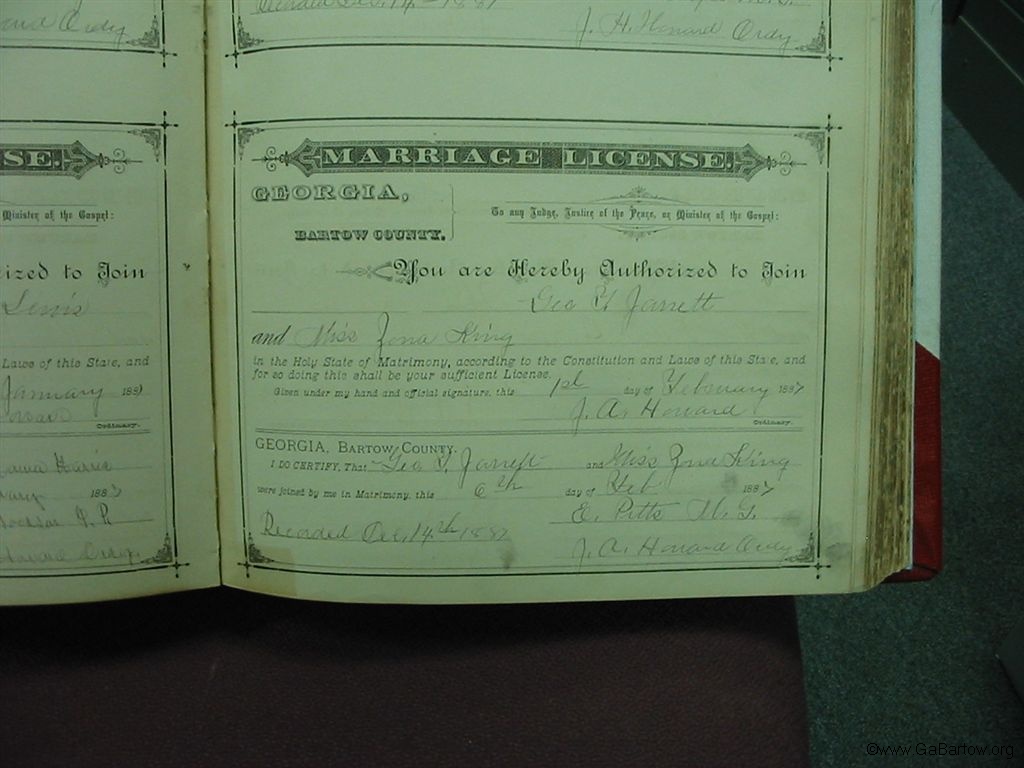 Ordy
Recorded Dec. 14 - 1887
J. H. Howard Ordy
SE.
Minister of the Gospel:
rized to Join
Lewis
Laws of this State, and
January 1887
Ordinary.
188
J. P.
Ordy.
MARRIAGE LICENSE.
GEORGIA,
BARTOW COUNTY.
To any Judge, Justice of the Peace, or Minister of the Gospel:
You are Hereby Authorized to Join
Geo Y Jarrett
and Miss Zona King
in the Holy State of Matrimony, according to the Constitution and Laws of this State, and
for so doing this shall be your sufficient License.
Given under my hand and official signature, this 1st day of February 1887
J. A. Howard
Ordinary.
GEORGIA, BARTOW COUNTY.
I DO CERTIFY, That Geo Y. Jarrett and Miss Zona King
were joined by me in Matrimony, this 6th day of Feb 1887
E. Pitts M. G.
Recorded Dec, 14th 1887
J. A. Howard Ordy
©www.GaBartow.org